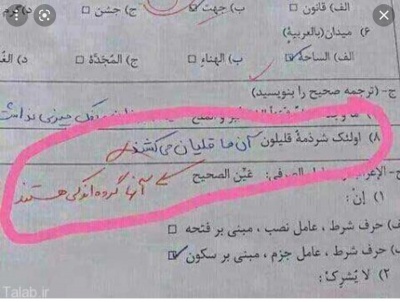 الف) قانون □ ب) جهت ☑ ج) جشن □
۶) میدان (بالعربیة)
الف) الساحة ☑ ب) الهناء □ ج) المُجِدَّة □
ج- (ترجمه صحیح را بنویسید)
۸) اولئک شرذمة قلیلون آن ها قلیان می کشند
آنها گروه اندکی هستند
عَیِّن الصحیح
۱) إنْ :
حرف شرط ، عامل نصب ، مبنی بر فتحه
حرف شرط ، عامل جزم ، مبنی بر سکون ☑
۲) لا یُشرِکْ :
Talab.ir